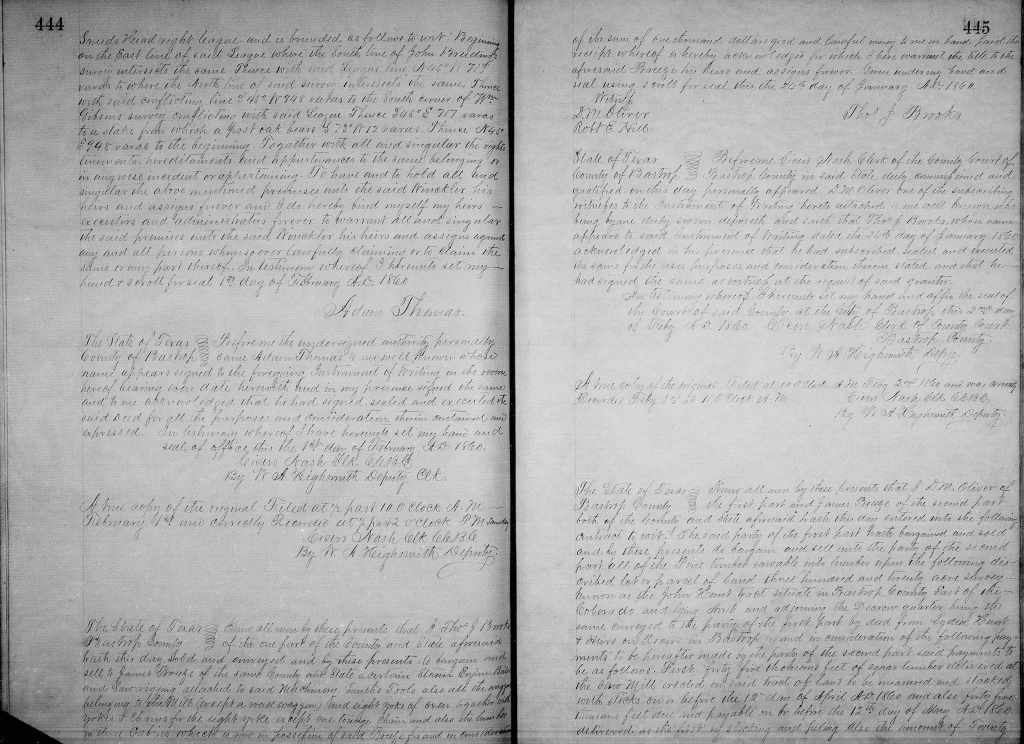 444
Sneeds Head right league and is bounded as follows to wit: Beginning
on the East line of said League where the South line of John
survey intersects the same Thence with said League line N 45° W
varas to where the North line of said survey intersects the same Thence
with said conflicting line S 45° W 948 varas to the South corner of Wm
Gibsons survey conflicting with said League Thence S 45° E 757 varas
to a stake from which a post oak bears S 72° W 12 varas Thence N 45°
E 948 varas to the beginning. Together with all and singular the rights
hereditaments and appurtenances to the same belonging or
in any wise incident or appertaining. To have and to hold all and
singular the above mentioned premises unto the said Winkler his
heirs and assigns forever and I do hereby bind myself my heirs
executors and administrators forever to warrant all and singular
the said premises unto the said Winkler his heirs and assigns against
any and all persons whomsoever lawfully claiming or to claim the
same or any part thereof. In testimony whereof I hereunto set my
hand & scroll for seal 1st day of February A.D. 1860
Adam Thomas
The State of Texas Before me the undersigned authority personally
County of Bastrop came Adam Thomas to me well known whose
name appears signed to the foregoing Instrument of Writing in the
hereof bearing even date herewith and in my presence signed the same
and to me acknowledged that he had signed sealed and executed the
said deed for all the purposes and consideration therein contained and
expressed. In testimony whereof I have hereunto set my hand and
seal of office this the 1st day of February A.D. 1860.
Given Nash Clk C.C.B.C
By W A Highsmith Deputy Clk.
A true copy of the original Filed at ½ past 10 O Clock A.M
February 1st and correctly Recorded at ½ past 2 o'clock P.M
Given Nash Clk C.C.B.C
By W A Highsmith Deputy
The State of Texas Know all men by these presents that I Thos J Brooks
Bastrop County of the one part of the County and State aforesaid
hath this day sold and conveyed and by these presents do bargain and
sell to James of the same County and State a certain Steam Engine
and Saw rigging attached to said Machinery Smiths Tools also all the
belonging to the Mill (except a road waggon) and eight yoke of oxen together with
yokes & chains for the eight yoke except one chain and also the
which are now in possession of said and in consideration
445
of the sum of one thousand dollars good and lawful money to me in hand paid the
receipt whereof is hereby acknowledged for which I here warrant the title to the
aforesaid his heirs and assigns forever. Given under my hand and
seal using scroll for seal this the 24th day of January A.D. 1860.
Witness
D. M. Oliver
Robt E. Hill
Thos J Brooks
State of Texas Before me Given Nash Clerk of the County Court of
County of Bastrop Bastrop County in said State duly commissioned and
qualified on this day personally appeared D. M. Oliver one of the subscribing
witnesses to the Instrument of Writing hereto attached to me well known who
being by me duly sworn deposeth and saith that Thos J Brooks whose name
appears to said Instrument of Writing dated the 24th day of January 1860
acknowledged in his presence that he had subscribed sealed and executed
the same for the uses purposes and consideration therein stated and that he
had signed the same as witness at the request of said grantor.
In testimony whereof I hereunto set my hand and affix the seal of
the Court of said County at the City of Bastrop this 2nd day
of Feby A.D. 1860. Given Nash Clerk of County Court
Bastrop County
By W A Highsmith Depty
A true copy of the original Filed at 10 O Clock A.M Feby 2nd 1860 and was correctly
Recorded Feby 2nd at 11 O Clock A.M. Given Nash Clk C.C.B.C.
By W A Highsmith Deputy
The State of Texas Know all men by these presents that I D. M. Oliver of
Bastrop County the first part and James of the second part
both of the County and State aforesaid hath this day entered into the following
contract to wit. The said party of the first part hath bargained and sold
and by these presents do bargain and sell unto the party of the second
part all of the Pine timber sawable into lumber upon the following des-
cribed lot or parcel of land three hundred and twenty acre survey
known as the John Hunt tract situate in Bastrop County East of the
Colorado and lying North and adjoining the quarter being the
same conveyed to the party of the first part by deed from Hunt
in Bastrop and in consideration of the following pay-
ments to be hereafter made by the party of the second part said payments to
be as follows. First forty five thousand feet of square lumber delivered at
the Saw Mill erected on said tract of land to be measured and stacked
with sticks on or before the 12th day of April A.D. 1860 and also forty five
thousand feet due and payable on or before the 12th day of May A.D. 1860
delivered as the first by sticking and piling Also the amount of Twenty